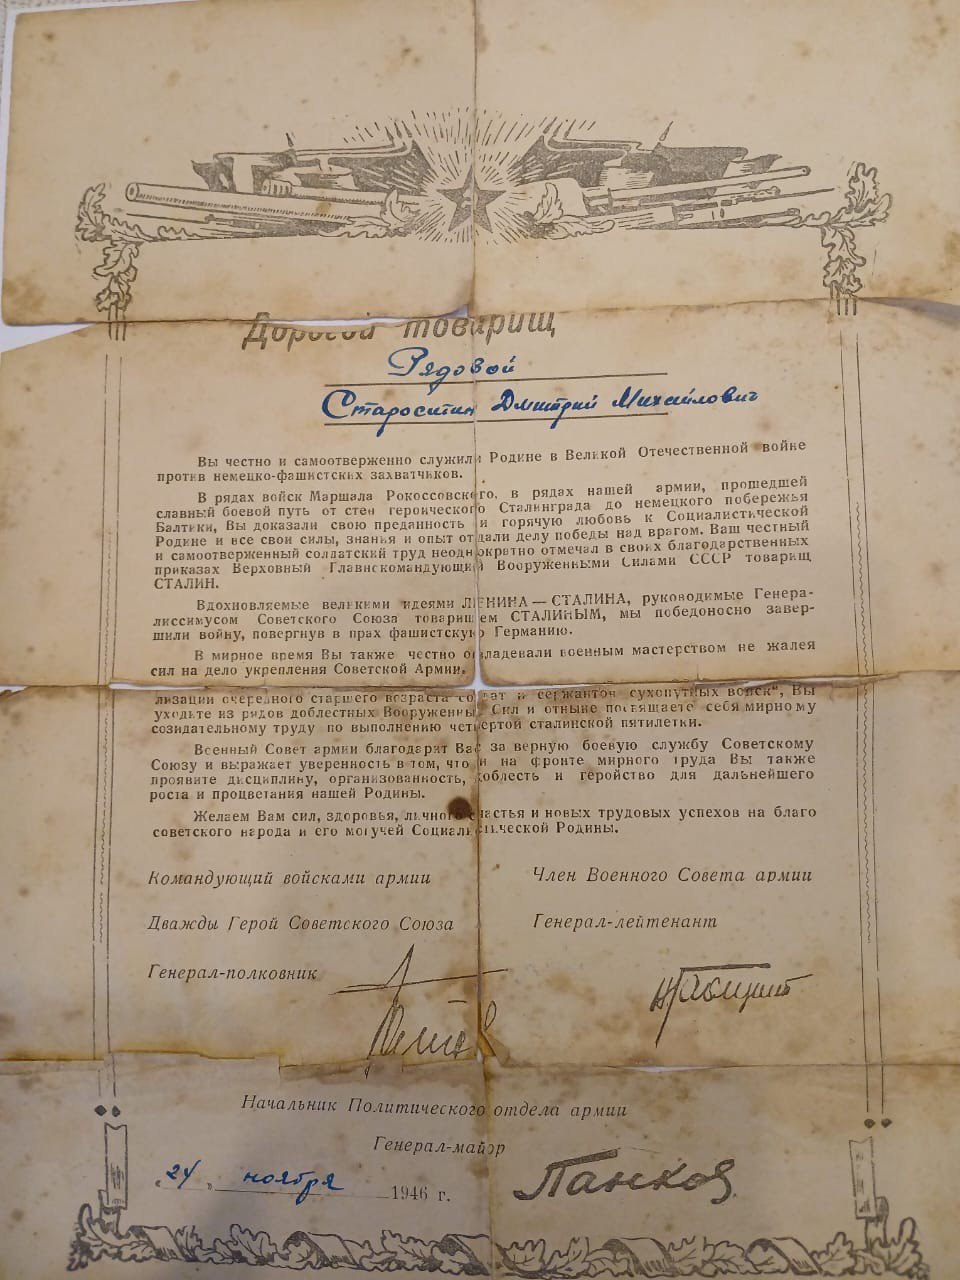 Дорогой товарищ
Рядовой
Дмитрий Михайлович
Вы честно и самоотверженно служили Родине в Великой Отечественной войне
против немецко-фашистских захватчиков.
В рядах войск Маршала Рокоссовского, в рядах нашей армии, прошедшей
славный боевой путь от стен героического Сталинграда до немецкого побережья
Балтики, Вы доказали свою преданность и горячую любовь к Социалистической
Родине и все свои силы, знания и опыт отдали делу победы над врагом. Ваш честный
и самоотверженный солдатский труд неоднократно отмечал в своих благодарственных
приказах Верховный Главнокомандующий Вооруженными Силами СССР товарищ
СТАЛИН.
Вдохновляемые великими идеями ЛЕНИНА — СТАЛИНА, руководимые Генера-
лиссимусом Советского Союза товарищем СТАЛИНЫМ, мы победоносно завер-
шили войну, повергнув в прах фашистскую Германию.
В мирное время Вы также честно овладевали военным мастерством не жалея
сил на дело укрепления Советской Армии.
лизации очередного старшего возраста солдат и сержантов сухопутных войск", Вы
уходите из рядов доблестных Вооруженных Сил и отныне посвящаете себя мирному
созидательному труду по выполнению четвертой сталинской пятилетки.
Военный Совет армии благодарит Вас за верную боевую службу Советскому
Союзу и выражает уверенность в том, что и на фронте мирного труда Вы также
проявите дисциплину, организованность, доблесть и геройство для дальнейшего
роста и процветания нашей Родины.
Желаем Вам сил, здоровья, личного счастья и новых трудовых успехов на благо
советского народа и его могучей Социалистической Родины.
Командующий войсками армии
Дважды Герой Советского Союза
Генерал-полковник
Член Военного Совета армии
Генерал-лейтенант
Начальник Политического отдела армии
Генерал-майор
Панков
„24" ноября 1946 г.